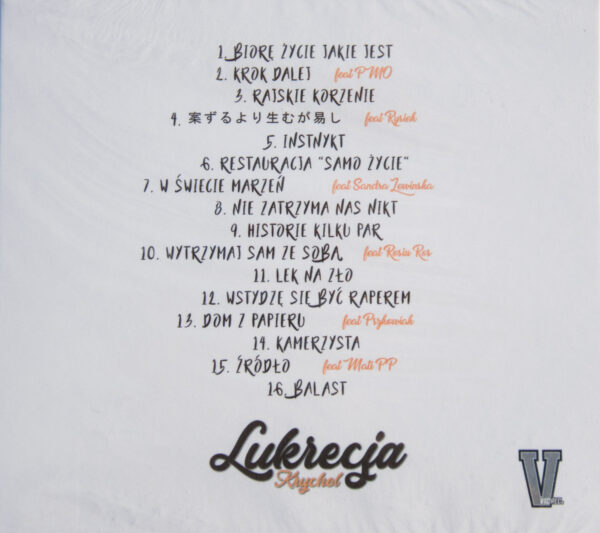 1. BIORĘ ŻYCIE JAKIE JEST
2. KROK DALEJ feat PMO
3. RAJSKIE KORZENIE
4. 案ずるより生むが易し feat Rysiek
5. INSTNYKT
6. RESTAURACJA "SAMO ŻYCIE"
7. W ŚWIECIE MARZEŃ feat Sandra Zawińska
8. NIE ZATRZYMA NAS NIKT
9. HISTORIE KILKU PAR
10. WYTRZYMAJ SAM ZE SOBĄ feat Resiu Res
11. LEK NA ZŁO
12. WSTYDZĘ SIĘ BYĆ RAPEREM
13. DOM Z PAPIERU feat Pszkowiak
14. KAMERZYSTA
15. ŹRÓDŁO feat Mati PP
16. BALAST
Lukrecja
Krychol
V